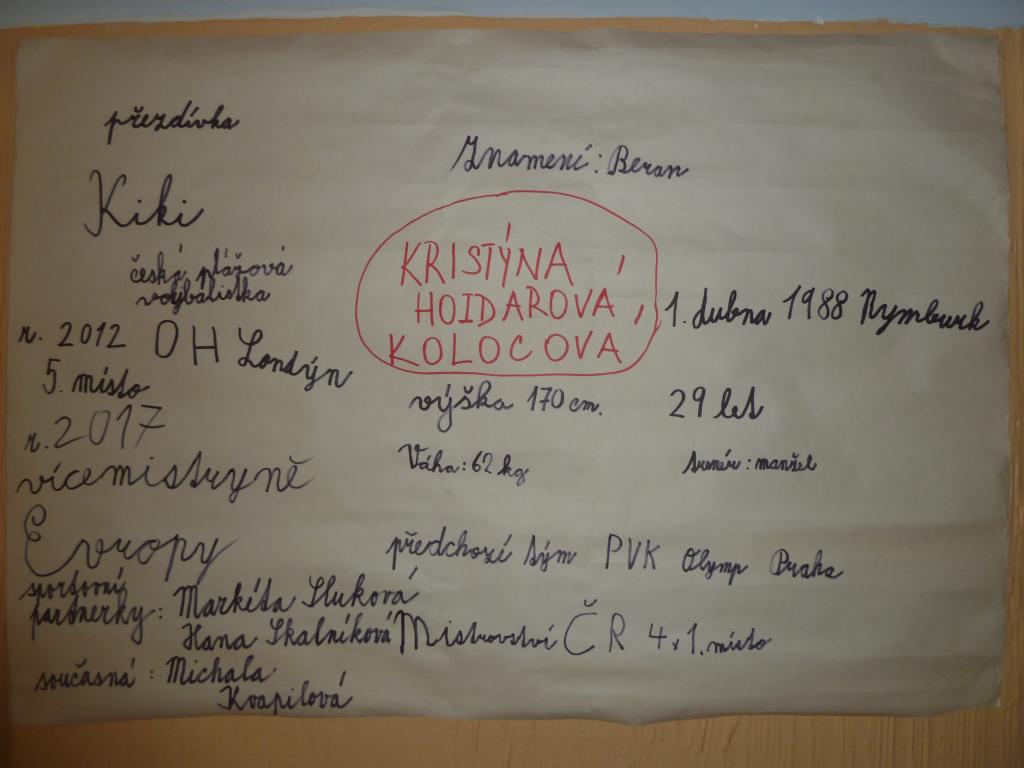 přezdívka
Kiki
česká plážová
volejbalistka
r. 2012 OH Londýn
5. místo
r. 2017
vícemistryně
Evropy
sportovní
partnerky: Markéta Sluková
Hana Skalníková
současná: Michala
Kvapilová
Znamení: Beran
KRISTÝNA
HOIDAROVÁ
KOLOCOVÁ
1. dubna 1988 Nymburk
výška 170 cm.
29 let
Váha: 62 kg
trenér: manžel
předchozí tým PVK Olymp Praha
Mistrovství ČR 4x1. místo